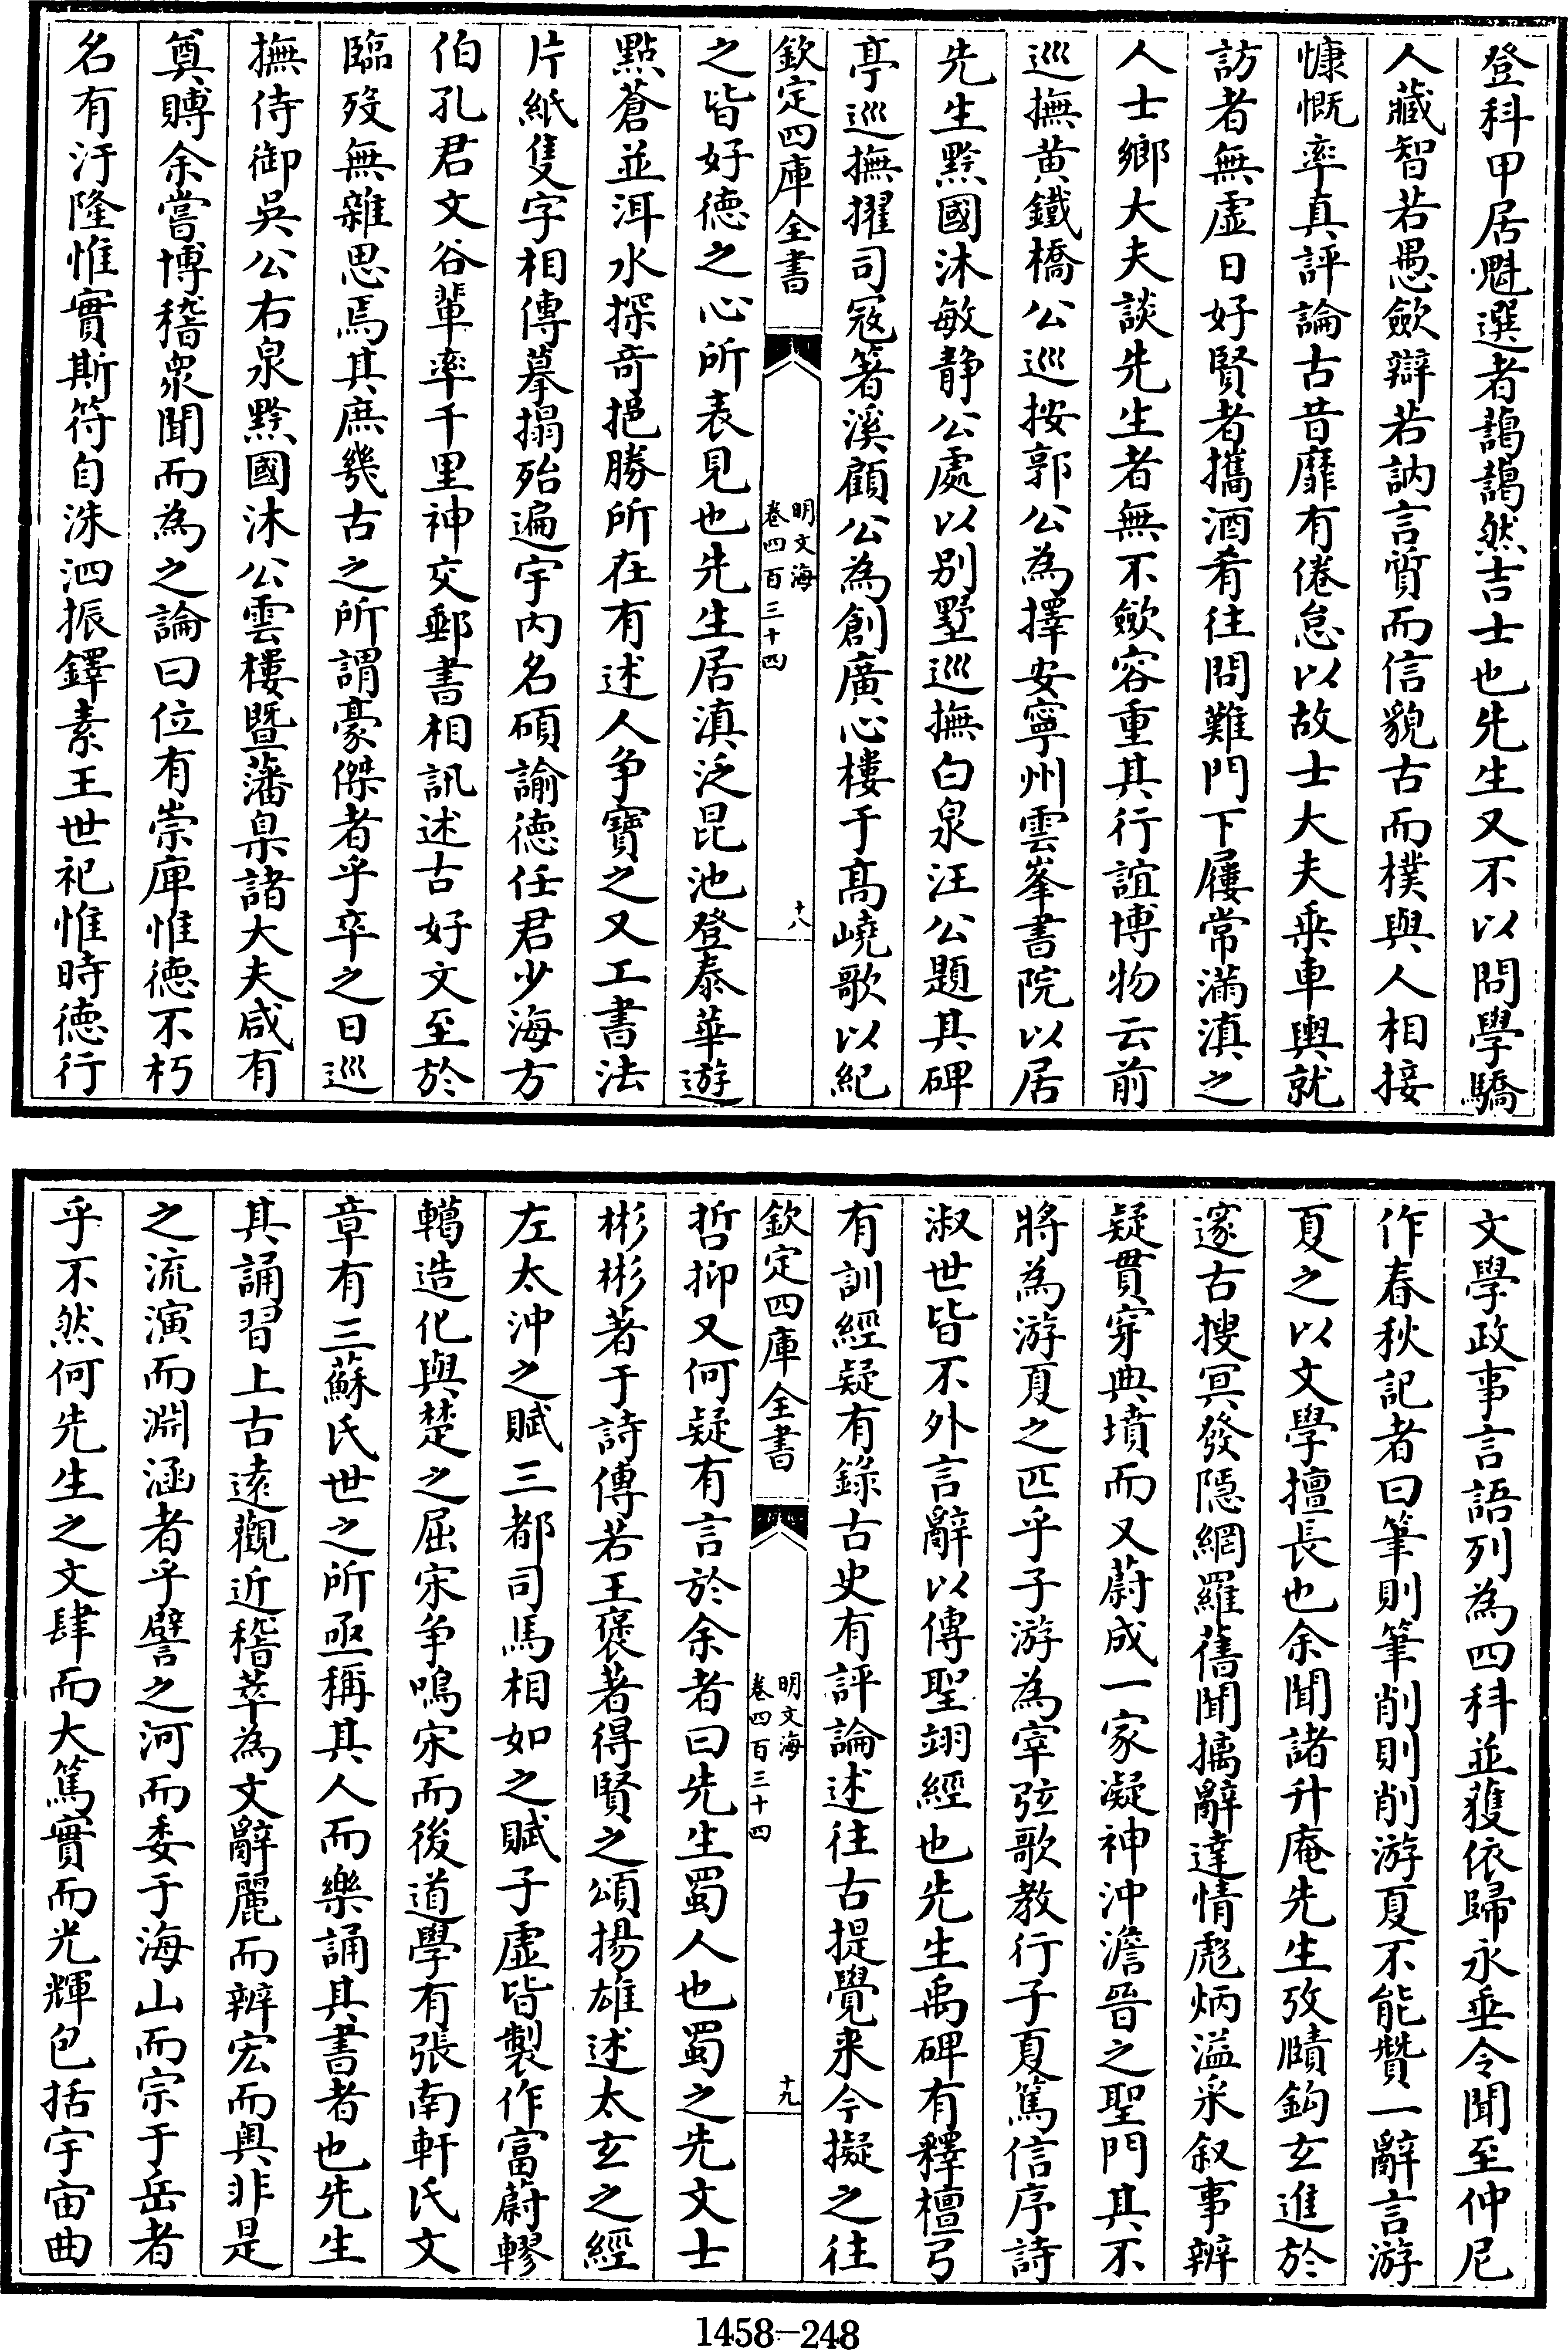 登科甲居魁選者藹藹然吉士也先生又不以問學驕
人藏智若愚歛辯若訥言質而信貌古而樸與人相接
慷慨率真評論古昔靡有倦怠以故士大夫乘車輿就
訪者無虛日好賢者攜酒肴往問難門下屨常滿滇之
人士鄉大夫談先生者無不歛容重其行誼博物云前
巡撫黄鐵橋公巡按郭公為擇安寧州雲峯書院以居
先生黔國沐敏靜公處以别墅巡撫白泉汪公題其碑
亭巡撫擢司寇箬溪顧公為創廣心樓于高嶢歌以紀
欽定四庫全書
明文海
卷四百三十四
十八
之皆好徳之心所表見也先生居滇泛昆池登泰華遊
點蒼並洱水探竒挹勝所在有述人争寶之又工書法
片紙隻字相傳摹搨殆遍宇内名碩諭徳任君少海方
伯孔君文谷輩率千里神交郵書相訊述古好文至於
臨歿無雜思焉其庶幾古之所謂豪傑者乎卒之日巡
撫侍御吳公右泉黔國沐公雲樓暨藩臬諸大夫咸有
奠賻余嘗博稽衆聞而為之論曰位有崇庳惟徳不朽
名有汙隆惟實斯符自洙泗振鐸素王世祀惟時徳行
文學政事言語列為四科並獲依歸永垂令聞至仲尼
作春秋記者曰筆則筆削則削游夏不能贊一辭言游
夏之以文學擅長也余聞諸升庵先生攷賾鈎玄進於
邃古搜冥發隱網羅舊聞摛辭達情彪炳溢采叙事辨
疑貫穿典墳而又蔚成一家凝神沖澹晉之聖門其不
將為游夏之匹乎子游為宰弦歌教行子夏篤信序詩
淑世皆不外言辭以傳聖翊經也先生禹碑有釋檀弓
有訓經疑有錄古史有評論述往古提覺来今擬之往
欽定四庫全書
明文海
卷四百三十四
十九
哲抑又何疑有言於余者曰先生蜀人也蜀之先文士
彬彬著于詩傳若王褒著得賢之頌揚雄述太玄之經
左太沖之賦三都司馬相如之賦子虛皆製作富蔚轇
轕造化與楚之屈宋争鳴宋而後道學有張南軒氏文
章有三蘇氏世之所亟稱其人而樂誦其書者也先生
其誦習上古逺觀近稽萃為文辭麗而辨宏而奥非是
之流演而淵涵者乎譬之河而委于海山而宗于岳者
乎不然何先生之文肆而大篤實而光輝包括宇宙曲
1458-248